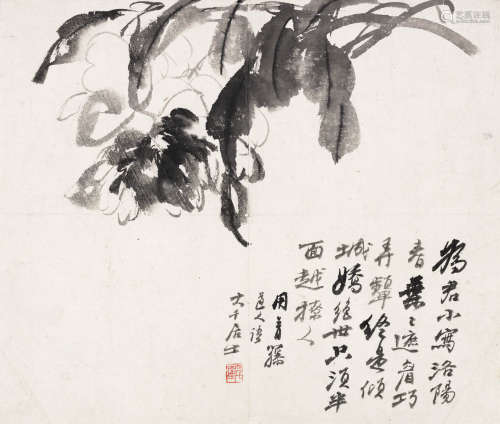 為君小寫洛陽
春葉葉遮眉巧
弄顰終是傾
城嬌絕世只須半
面越撩人
用青藤
道人語
大千居士